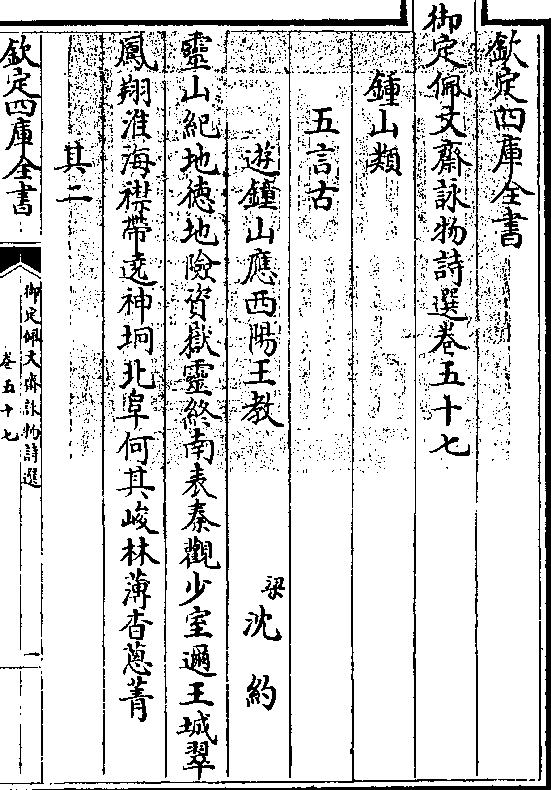 欽定四庫全書
御定佩文齋詠物詩選卷五十七
鍾山類
五言古
遊鍾山應西陽王教 梁 沈約
靈山紀地徳地險資嶽靈終南表秦觀少室邇王城翠
鳳翔淮海襟帶遶神坰北阜何其峻林薄杳葱菁
其二
欽定四庫全書
御定佩文齋詠物詩選
卷五十七
一